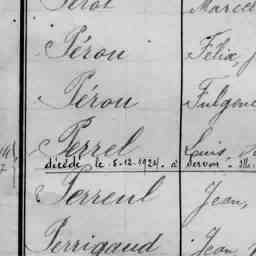 Perot Marcel
Péron Félix
Péron Fulgenc
Perrel Louis
décédé le 5-12-1924 - à Servon - Ille
Perreul Jean,
Perrigaud Jean